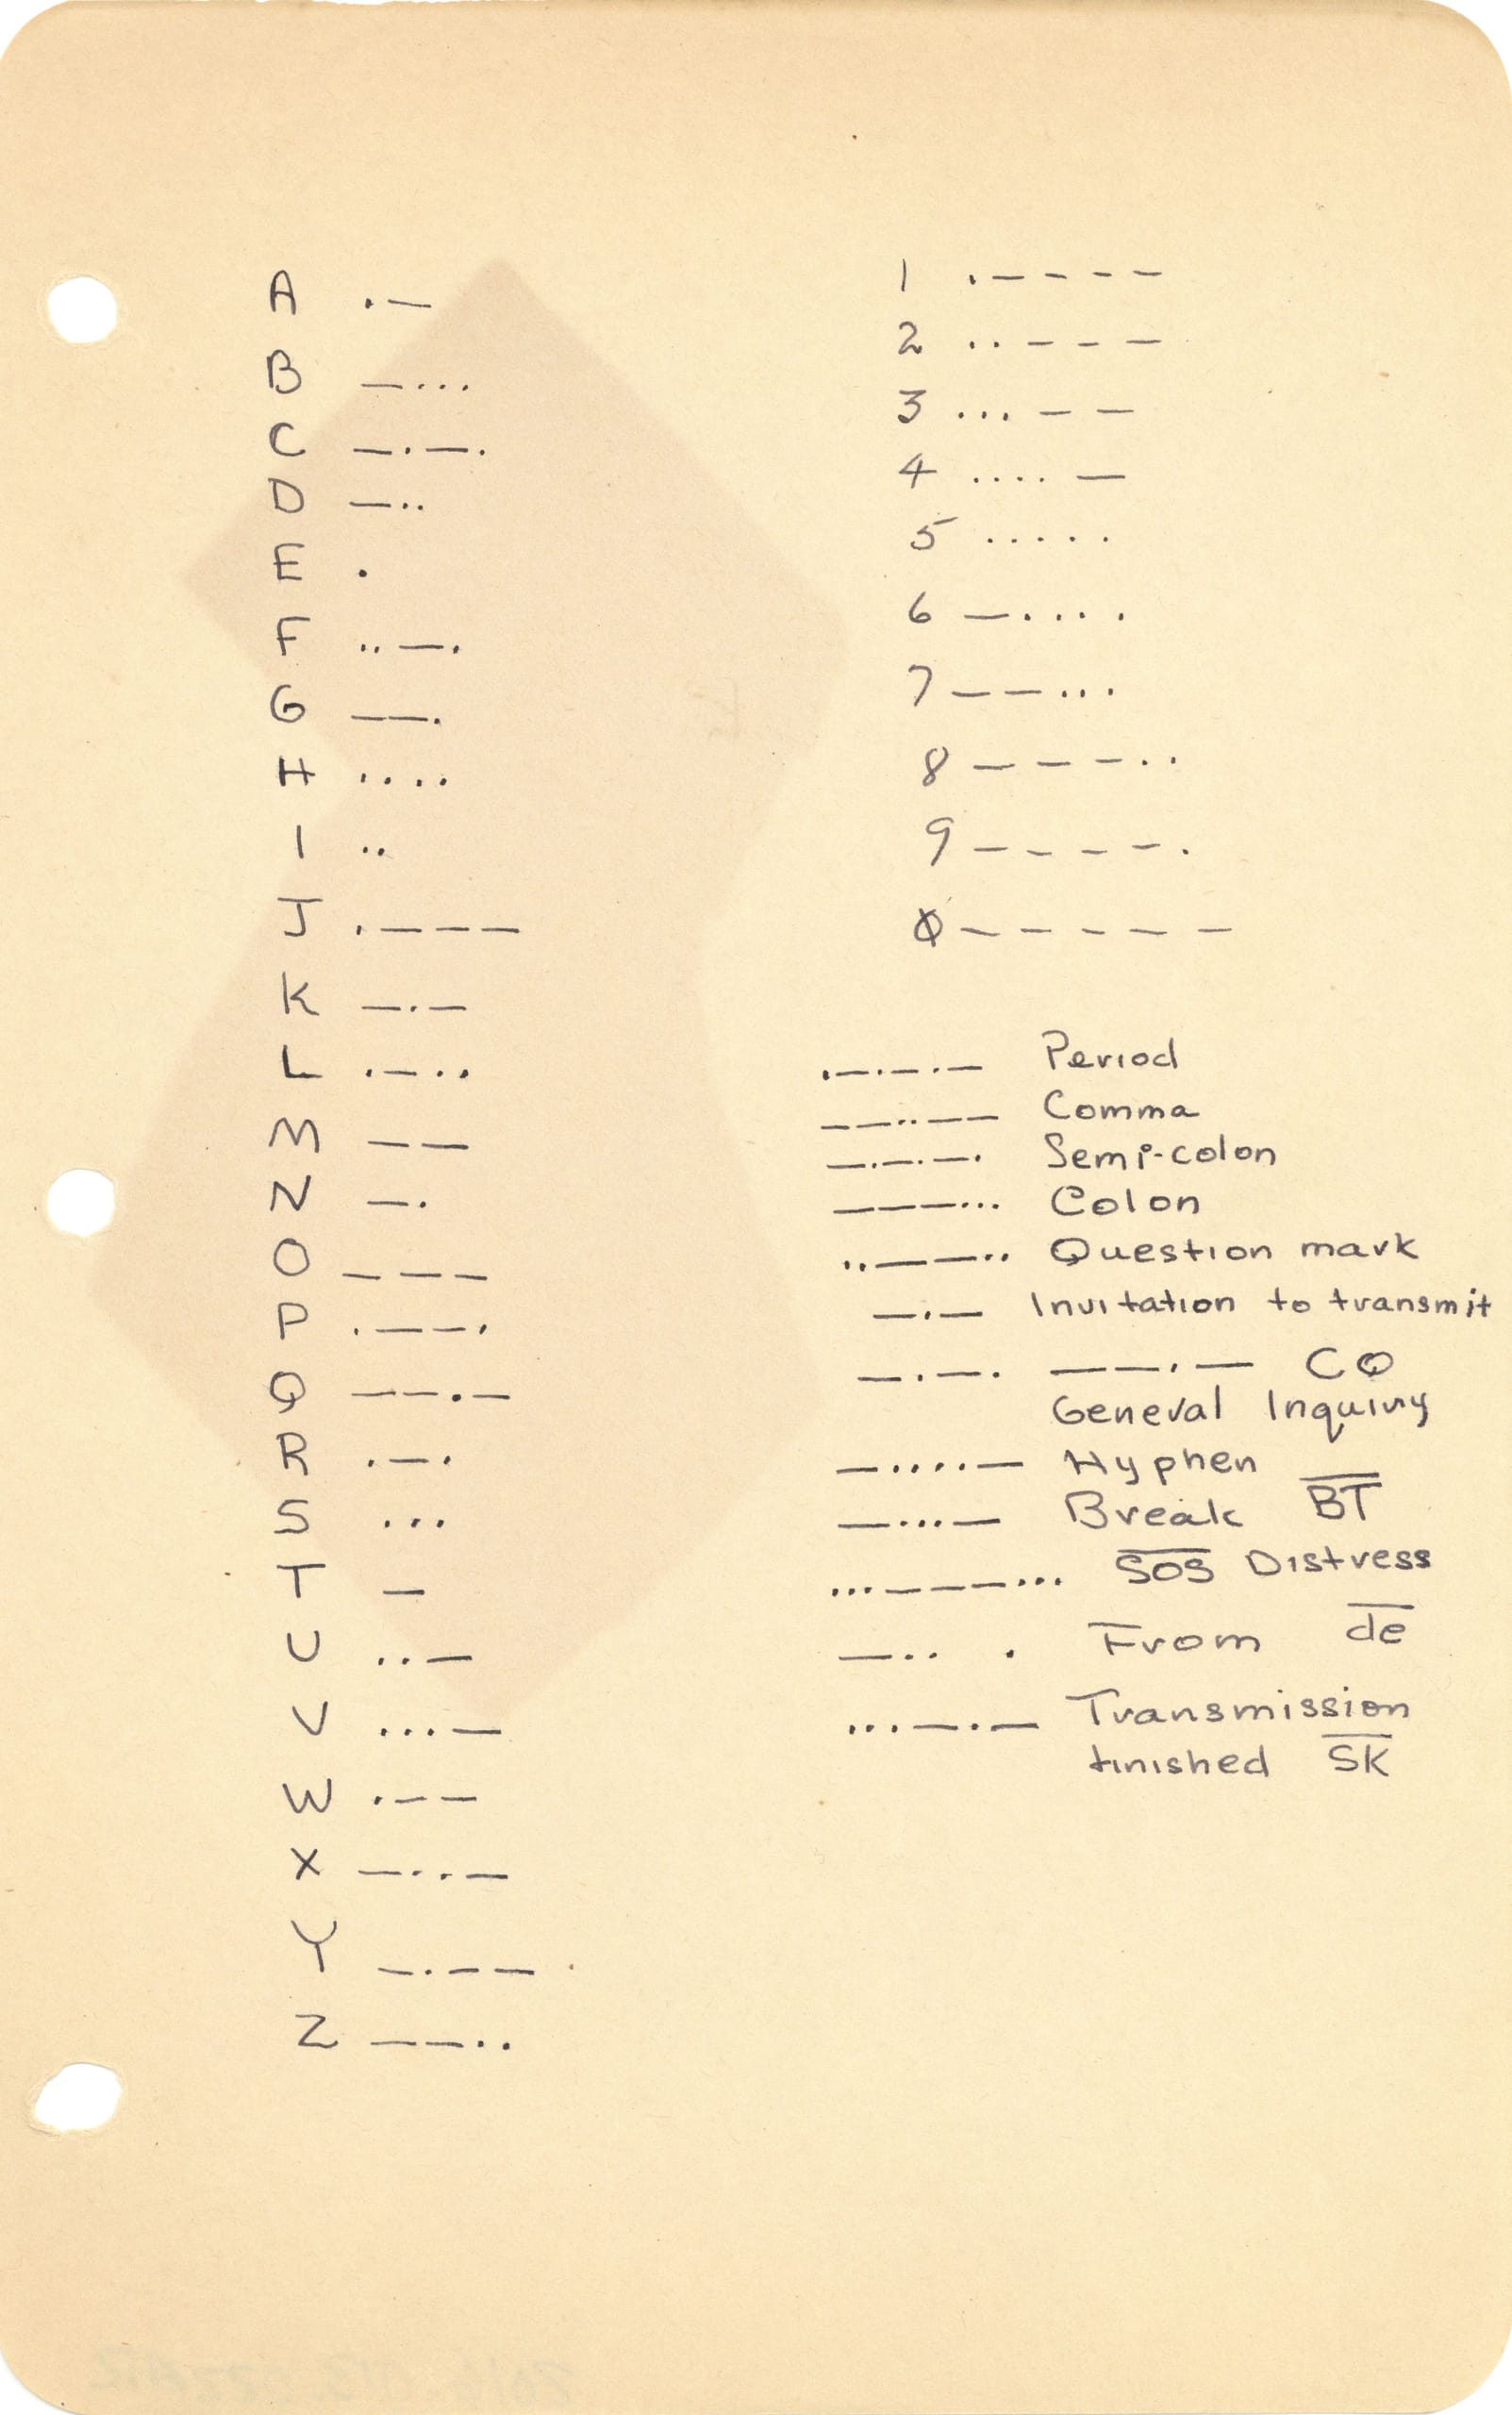 A .—
B —...
C —.—.
D —..
E .
F ..—.
G ——.
H ....
I ..
J .———
K —.—
L .—..
M ——
N —.
O ———
P .——.
Q ——.—
R .—.
S ...
T —
U ..—
V ...—
W .——
X —..—
Y —.——
Z ——..
1 .————
2 ..———
3 ...——
4 ....—
5 .....
6 —....
7 ——...
8 ———..
9 ————.
Ø —————
.—.—.— Period
——..—— Comma
—.—.—. Semi-colon
———... Colon
..——.. Question mark
—.— Invitation to transmit
—.—. ——.— CQ
General Inquiry
—....— Hyphen
—...— Break B̅T̅
...———... S̅O̅S̅ Distress
—.. . From d̅e̅
...—.— Transmission
finished S̅K̅